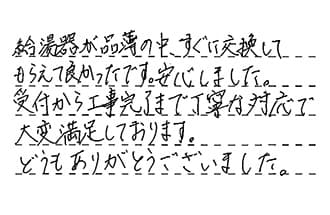 給湯器が品薄の中、すぐに交換して
もらえて良かったです。安心しました。
受付から工事完了まで丁寧な対応で
大変満足しております。
どうもありがとうございました。